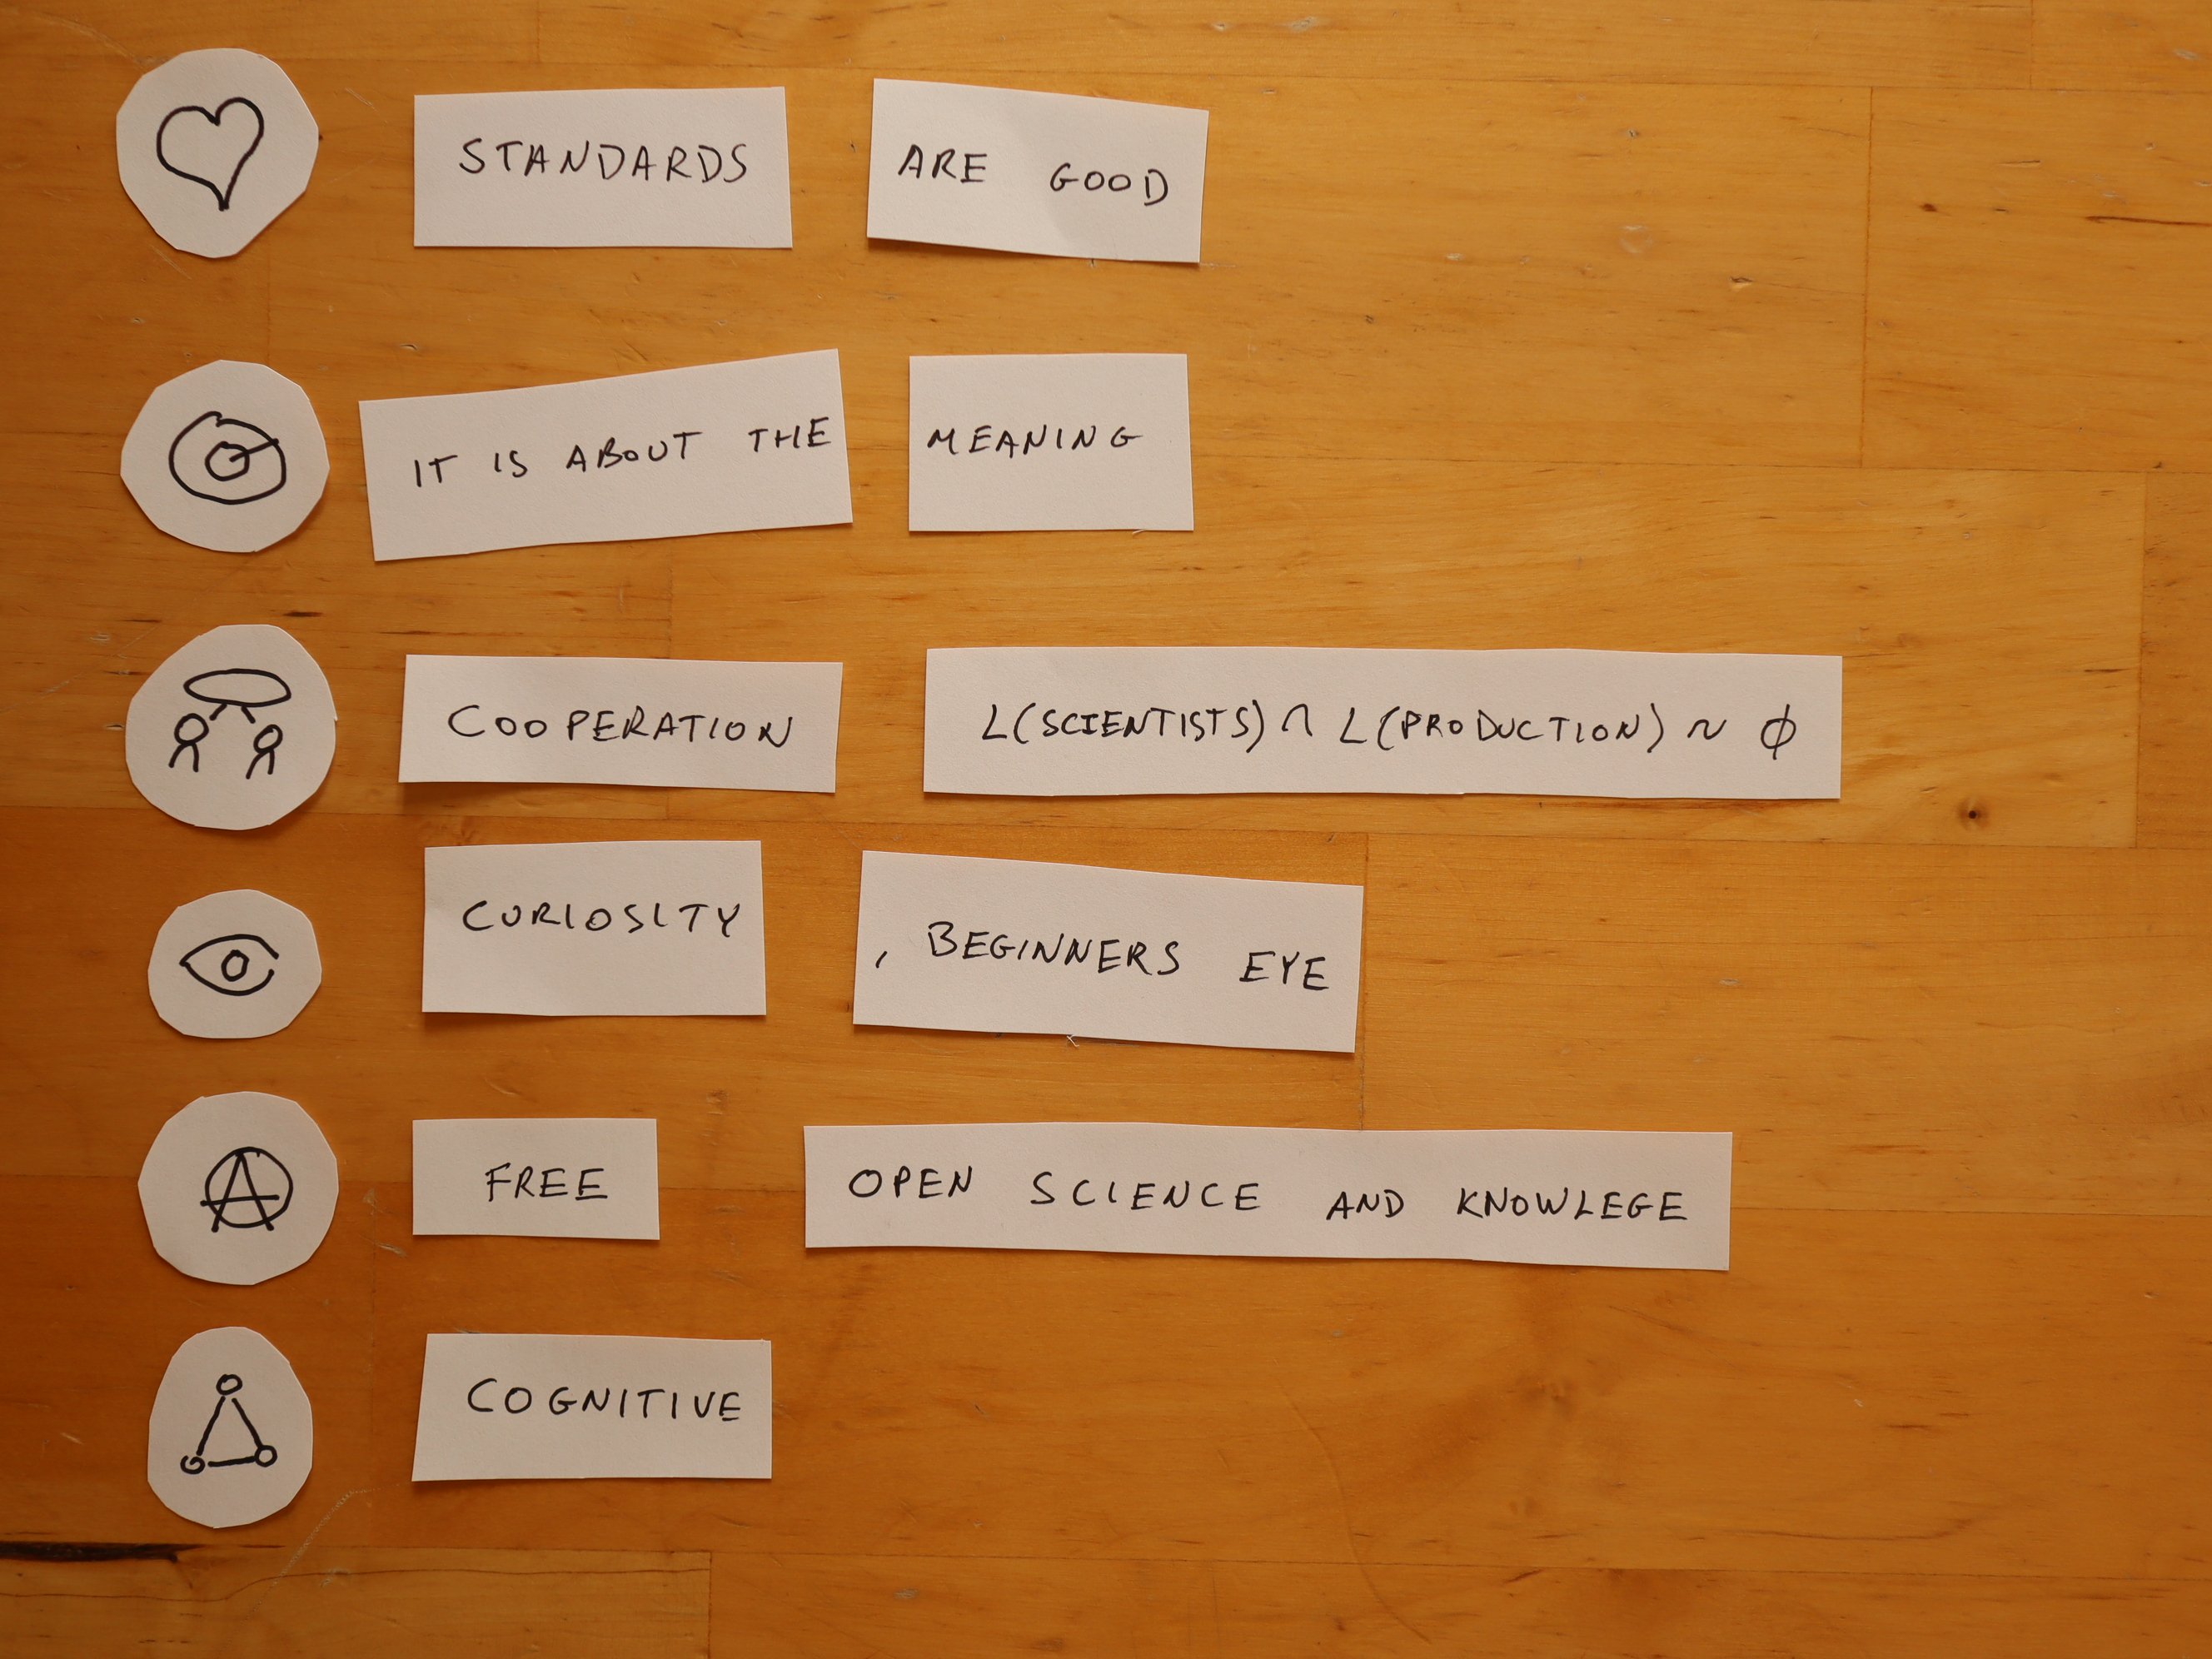 STANDARDS ARE GOOD
IT IS ABOUT THE MEANING
COOPERATION L(SCIENTISTS) ∩ L(PRODUCTION) ~ ∅
CURIOSITY , BEGINNERS EYE
FREE OPEN SCIENCE AND KNOWLEGE
COGNITIVE